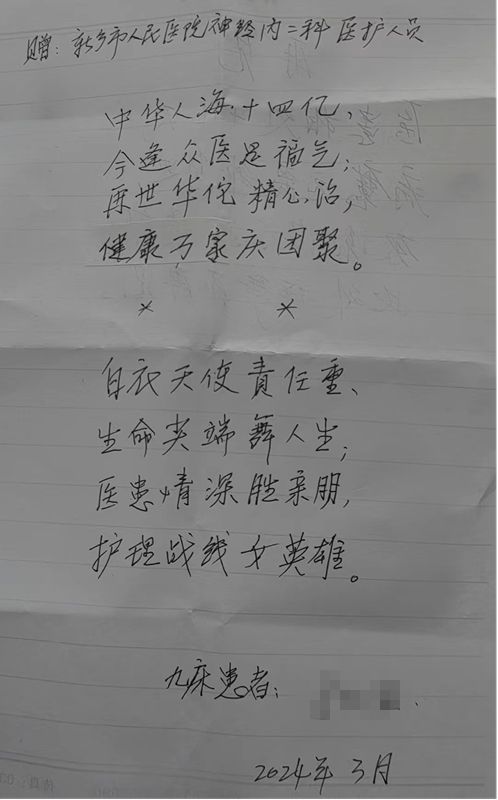 赠：新乡市人民医院神经内二科医护人员
中华人海十四亿，
今逢众医是福气；
再世华佗精心治，
健康万家庆团聚。
* *
白衣天使责任重、
生命尖端舞人生；
医患情深胜亲朋，
护理战线女英雄。
九床患者：
2024年3月